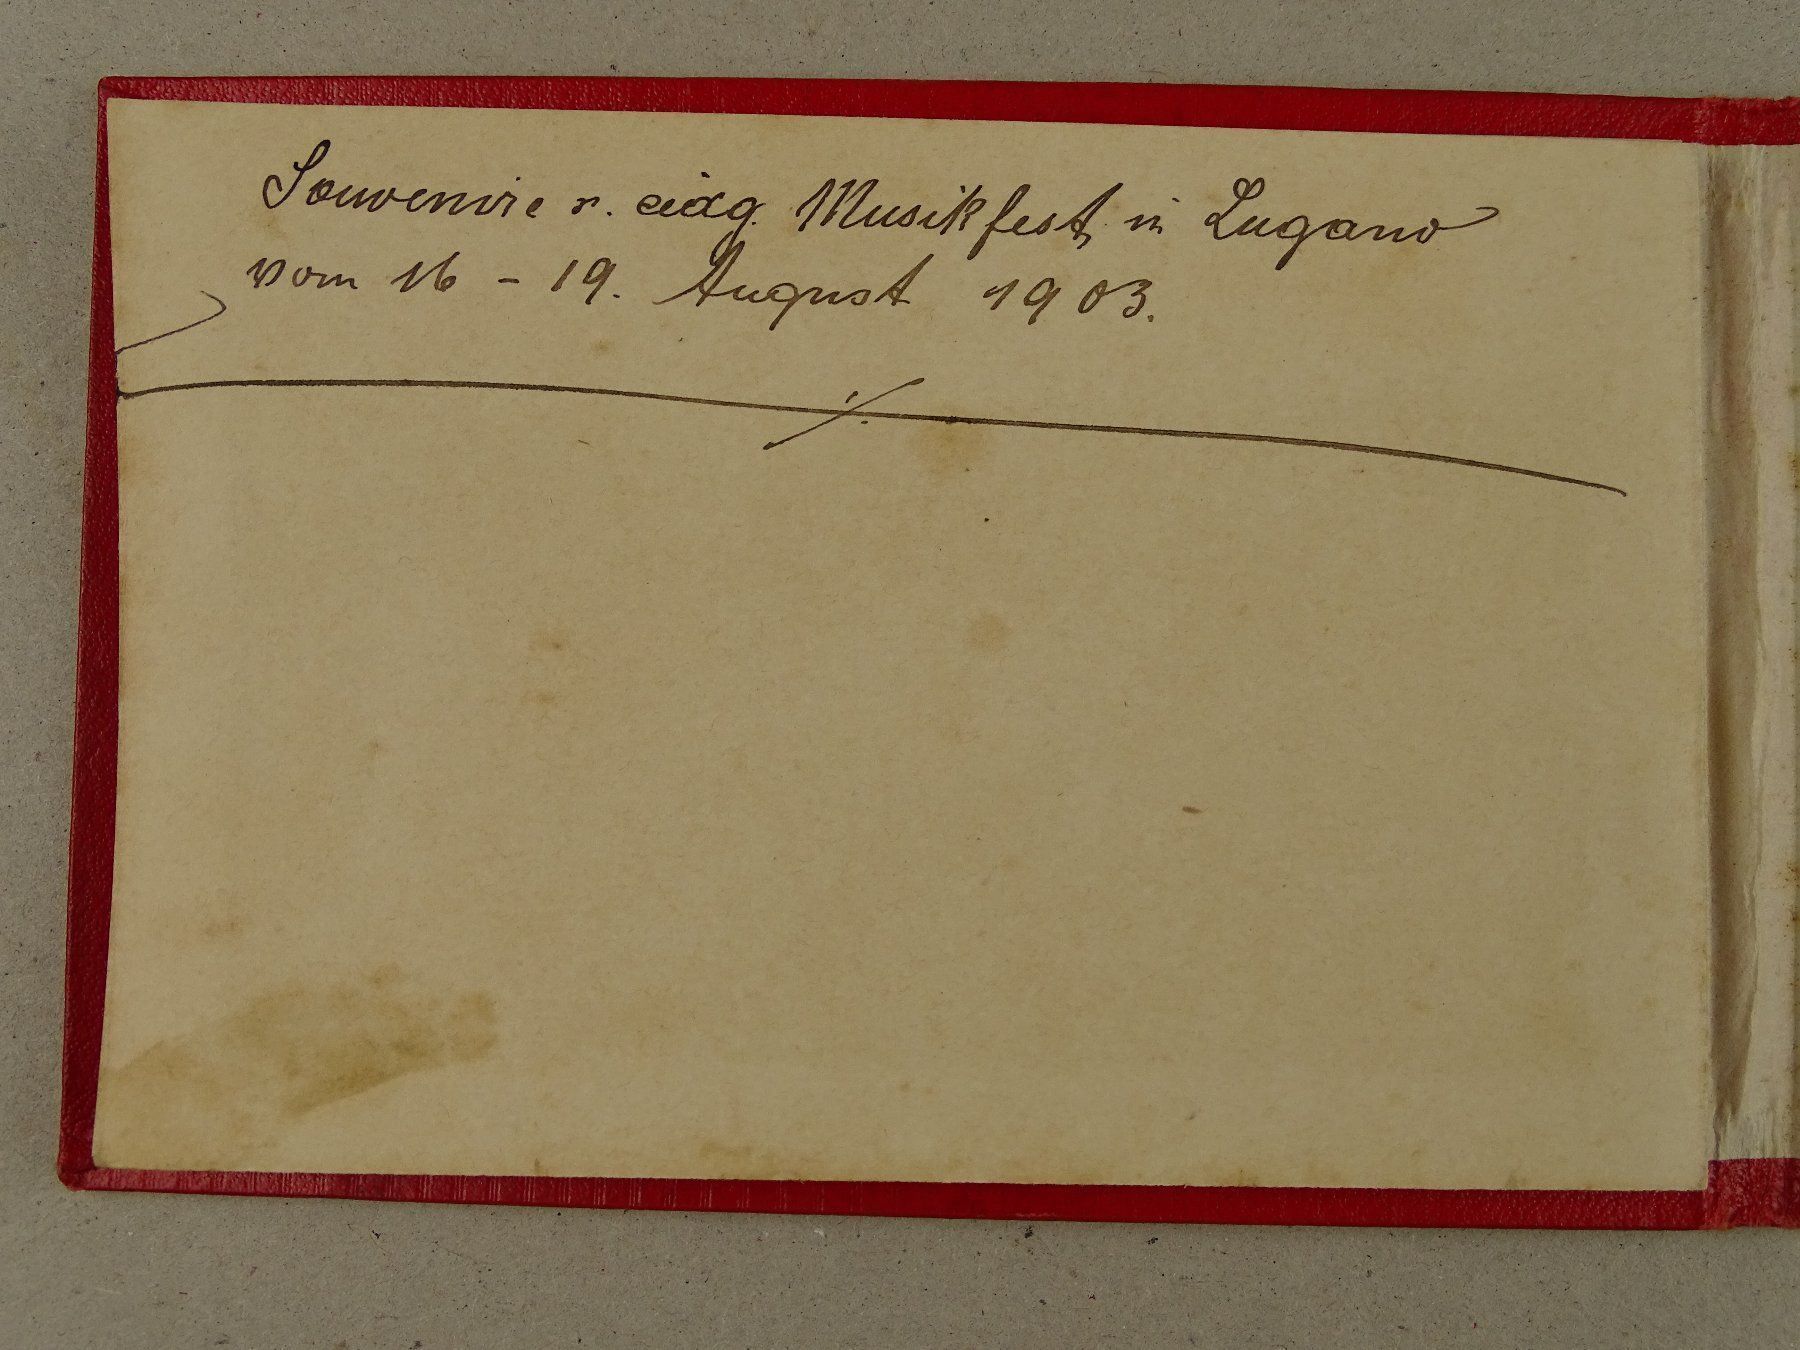 Souvenire v. eidg. Musikfest in Lugano
vom 16 - 19. August 1903.